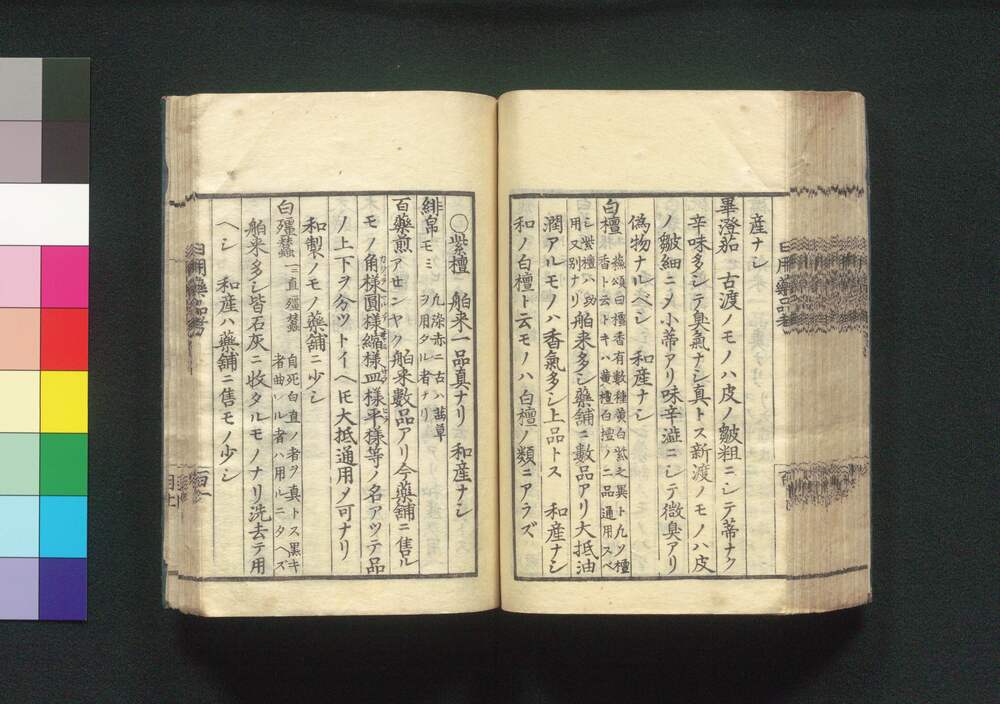 産ナシ
畢澄茄 古渡ノモノハ皮ノ皺粗ニシテ蒂ナク
辛味多シテ臭氣ナシ真トス新渡ノモノハ皮
ノ皺細ニメ小蒂アリ味辛澁ニシテ微臭アリ
偽物ナルベシ 和産ナシ
白檀 蘓頌曰檀香有數種黄白紫之異ト凡ツ檀
香ト云トキハ黄檀白檀ノ二品通用スベ
シ紫檀ハ効
用又別ナリ 舶来多シ藥舗ニ數品アリ大抵油
潤アルモノハ香氣多シ上品トス 和産ナシ
和ノ白檀ト云モノハ白檀ノ類ニアラズ
〇紫檀 舶来一品真ナリ 和産ナシ
緋帛モミ 凡染赤ニ古ハ茜草
ヲ用タル者ナリ
百藥煎 アセンヤク 舶来數品アリ今藥舗ニ售ル
モノ角様圓様縮様皿様平様等ノ名アツテ品
ノ上下ヲ分ツトイヘㇳモ大抵通用メ可ナリ
和製ノモノ藥舗ニ少シ
白殭蠶 一ニ直殭蠶 自死白直ノ者ヲ真トス黒キ
者曲レル者ハ用ルニタヘズ
舶来多シ皆石灰ニ收タルモノナリ洗去テ用
ヘシ 和産ハ藥舗ニ售モノ少シ
日用藥品考